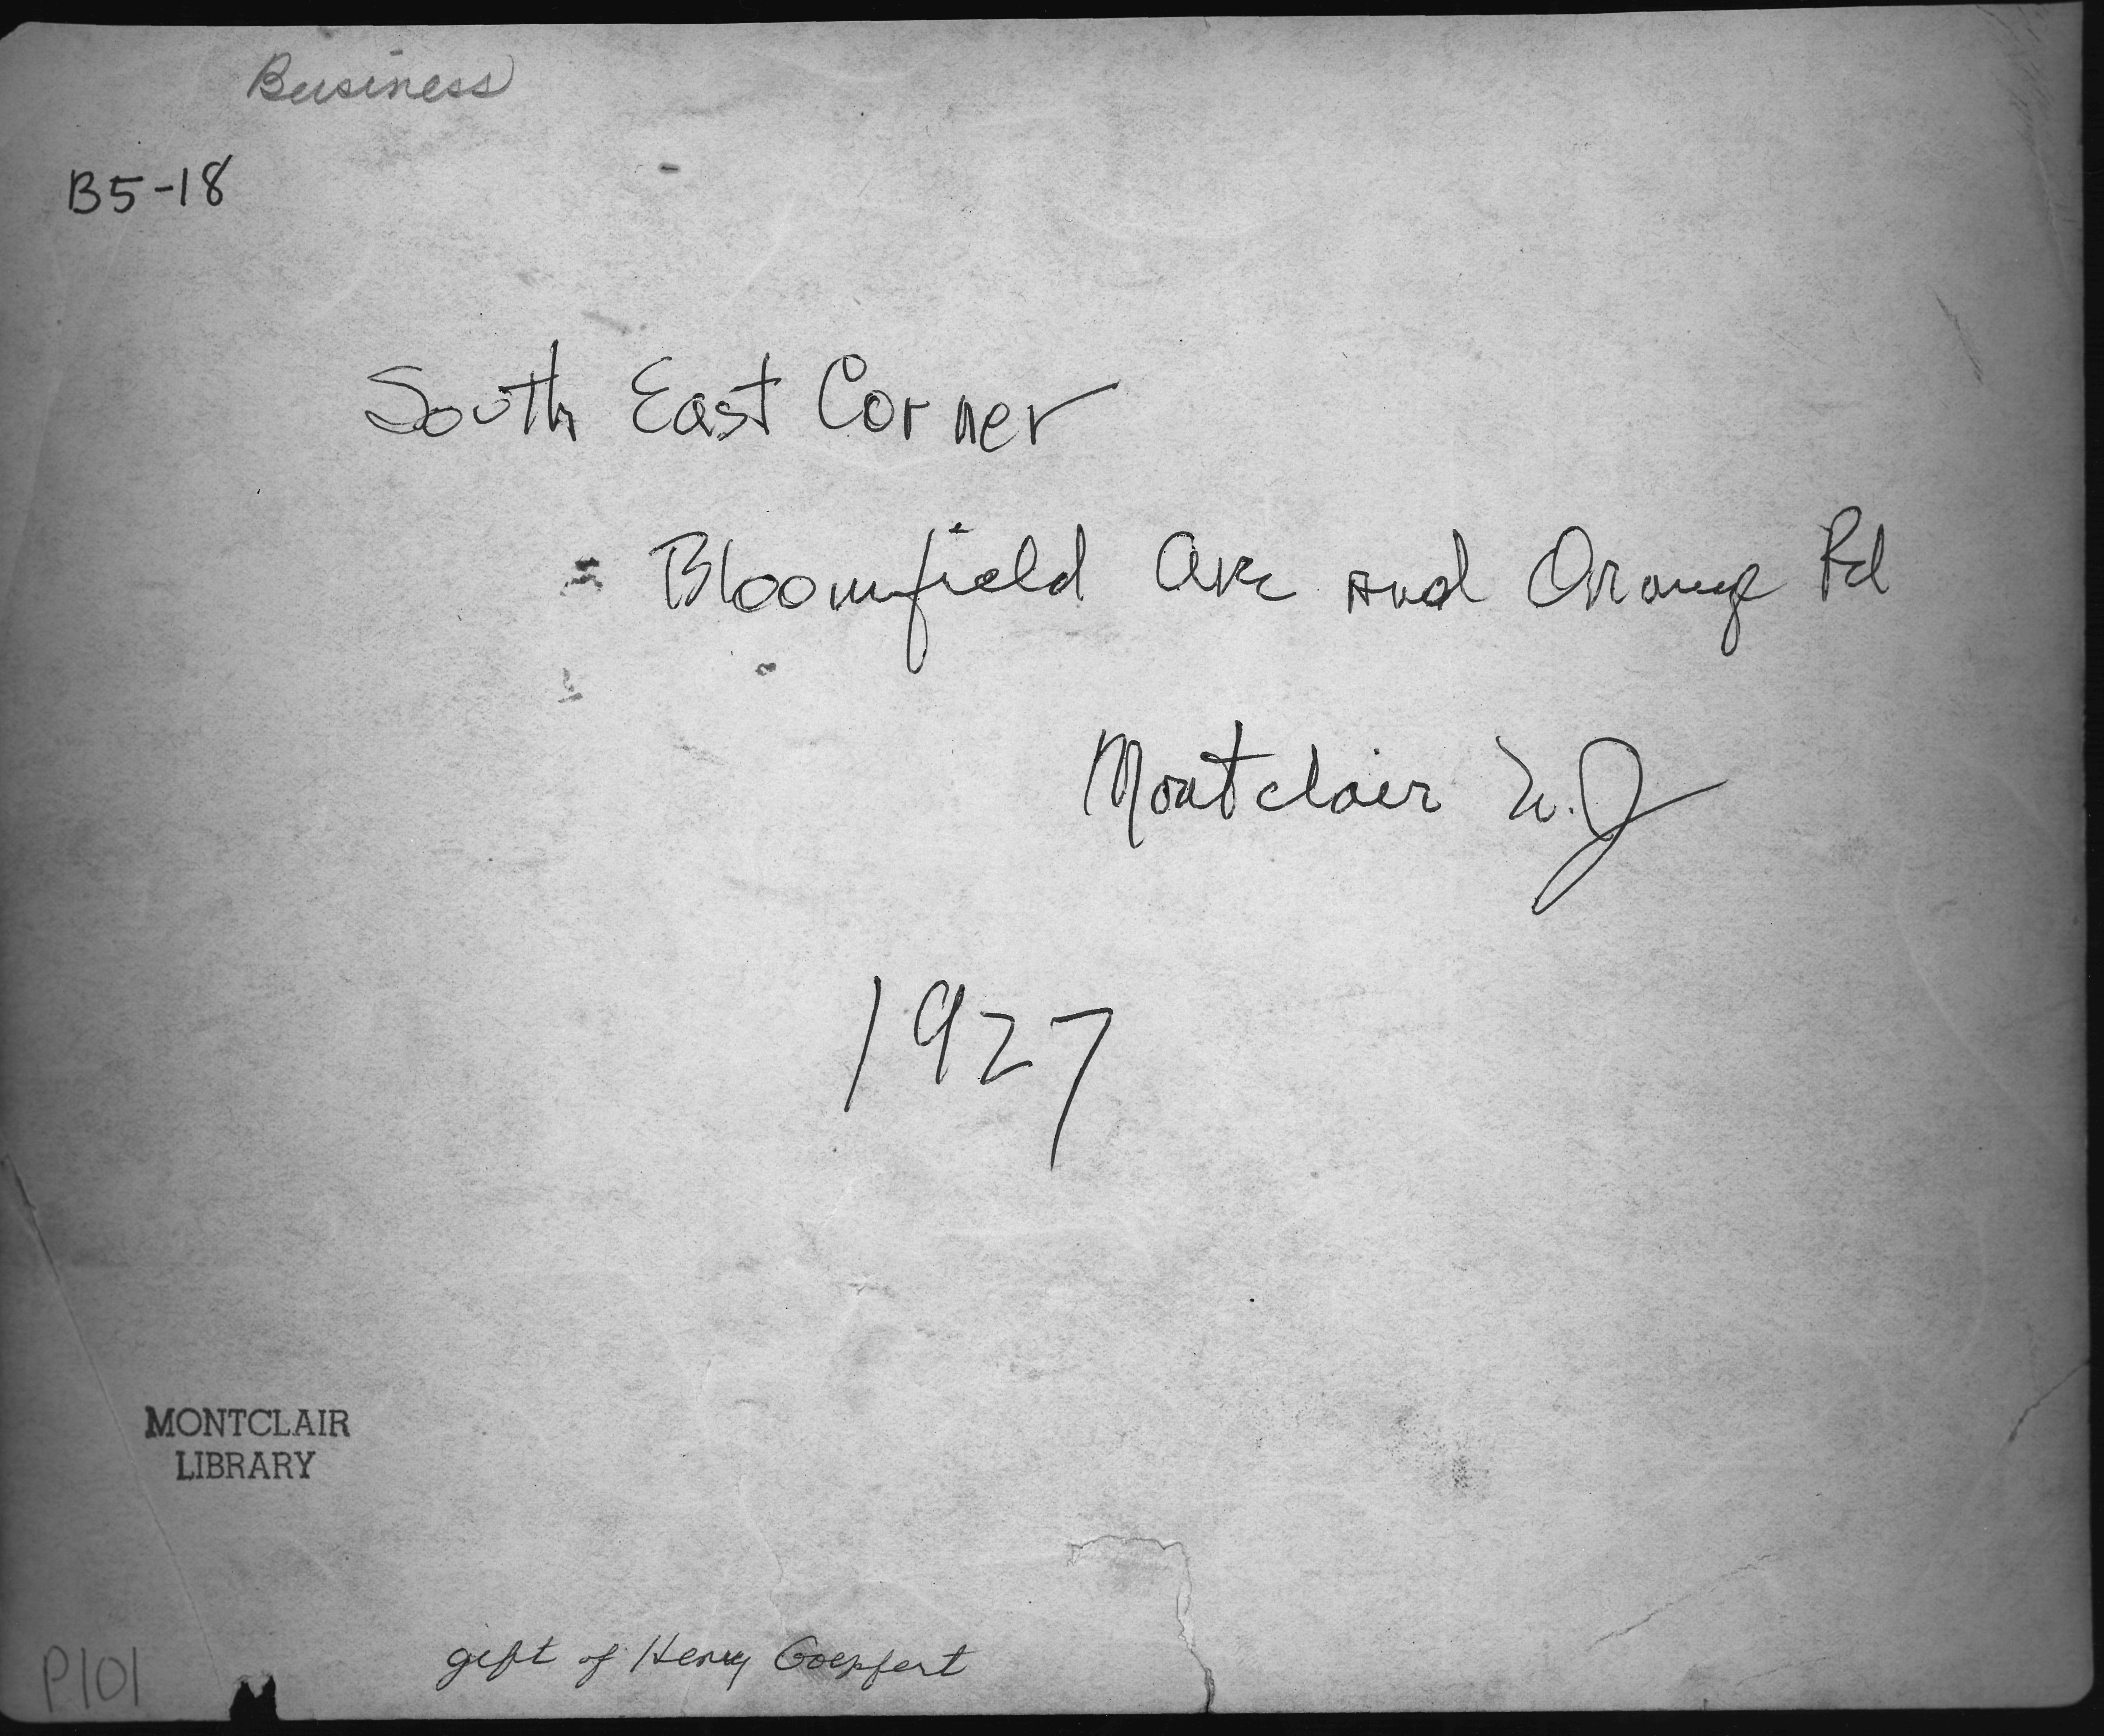 Business
B5-18
South East Corner
Bloomfield Ave and Orange Rd
Montclair N.J
1927
MONTCLAIR
LIBRARY
gift of Henry Goepfert
P101